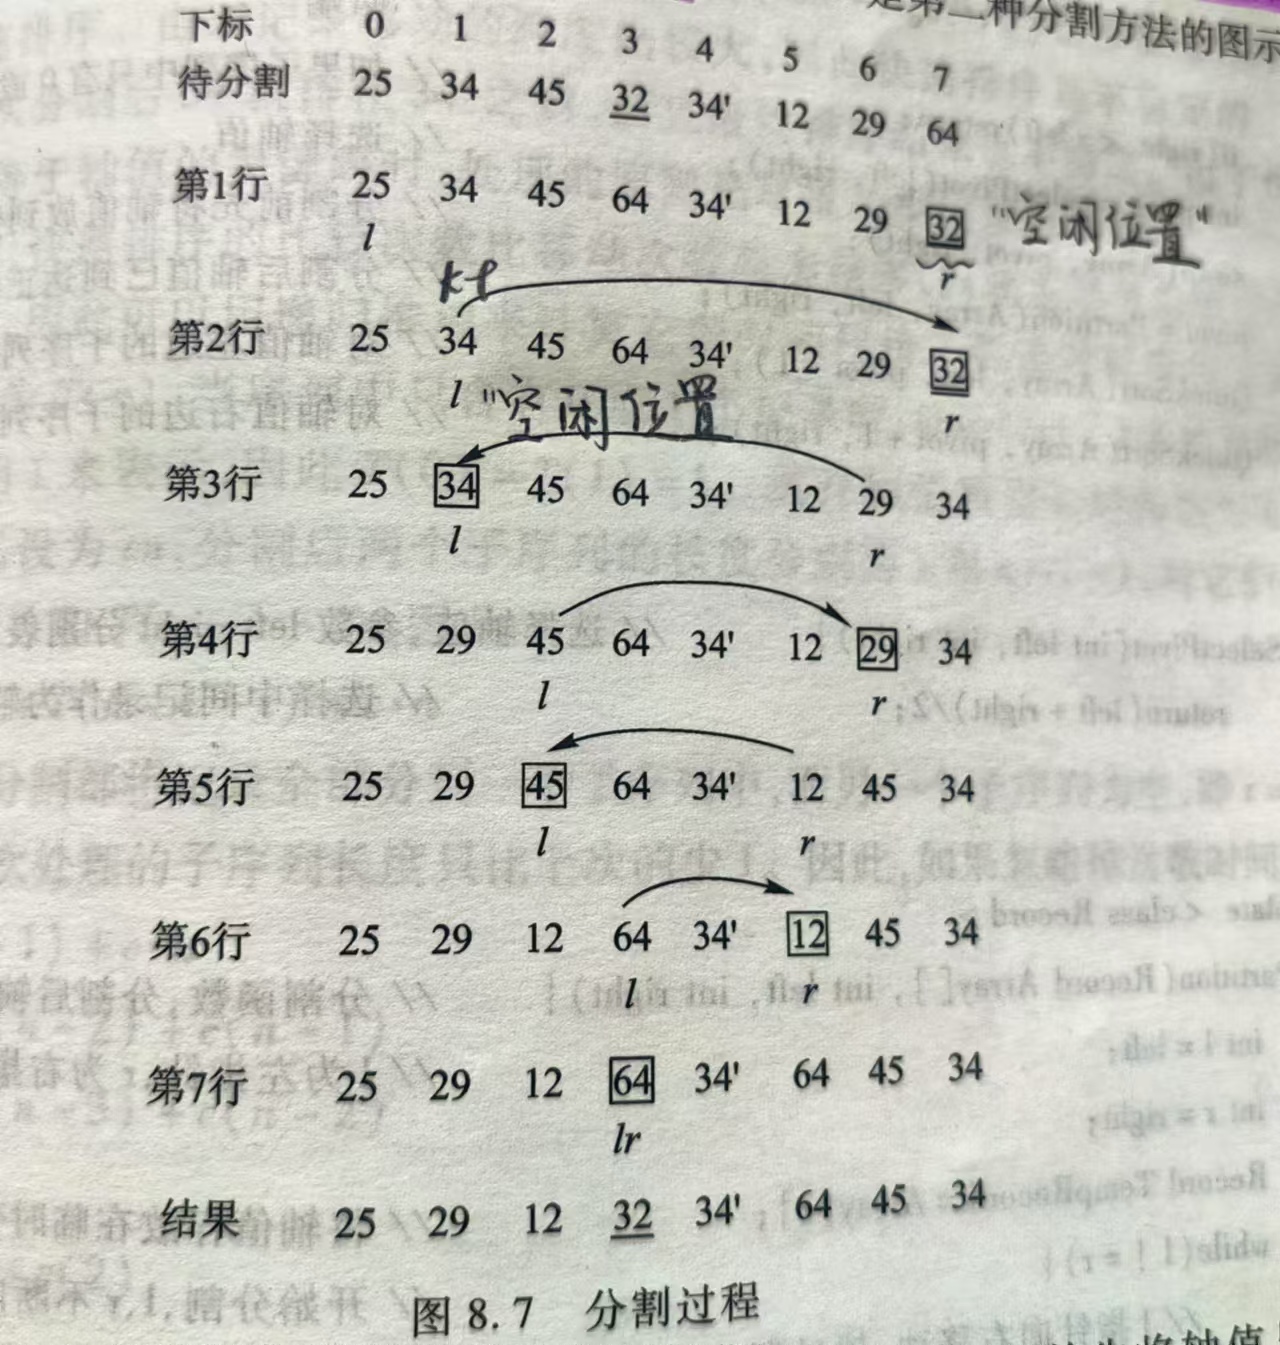 是第二种分割方法的图示
下标 0 1 2 3 4 5 6 7
待分割 25 34 45 32 34' 12 29 64
第1行 25 34 45 64 34' 12 29 32 "空闲位置"
l r
第2行 25 34 45 64 34' 12 29 32
l "空闲位置 r
第3行 25 34 45 64 34' 12 29 34
l r
第4行 25 29 45 64 34' 12 29 34
l r
第5行 25 29 45 64 34' 12 45 34
l r
第6行 25 29 12 64 34' 12 45 34
l r
第7行 25 29 12 64 34' 64 45 34
lr
结果 25 29 12 32 34' 64 45 34
图 8.7 分割过程